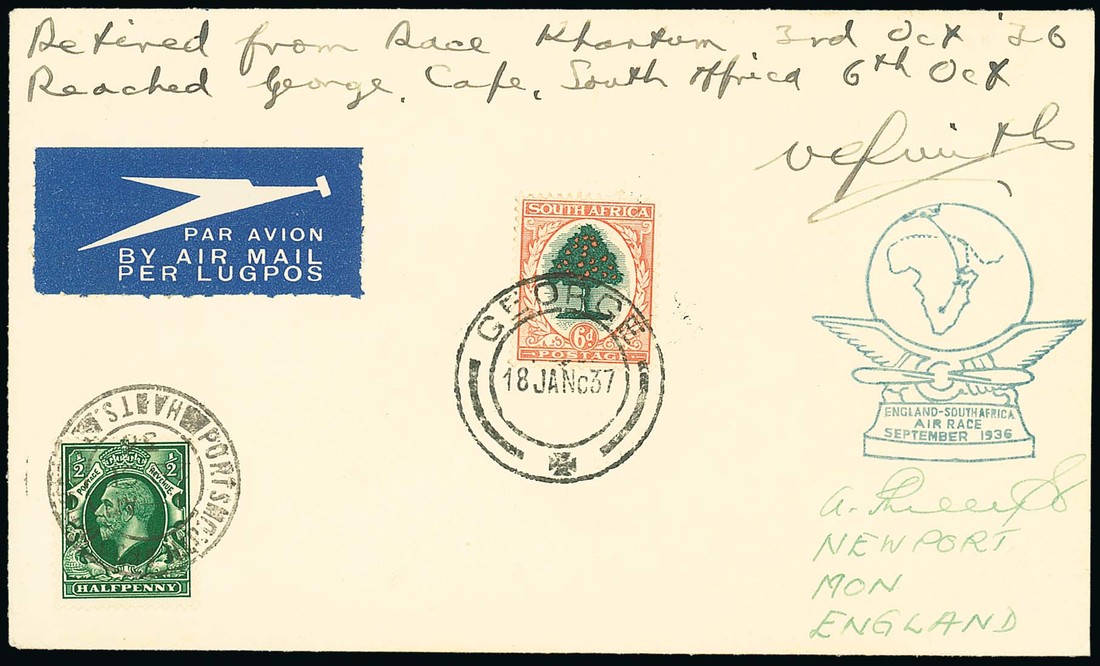 Retired from Race Khartum, 3rd Oct '36
Reached George, Cape, South Africa 6th Oct
PAR AVION
BY AIR MAIL
PER LUGPOS
SOUTH AFRICA
6d
POSTAGE
GEORGE
18 JAN 37
ENGLAND-SOUTH AFRICA
AIR RACE
SEPTEMBER 1936
PORTSMOUTH
HANTS.
½ ½
POSTAGE REVENUE
HALFPENNY
A.
NEWPORT
MON
ENGLAND